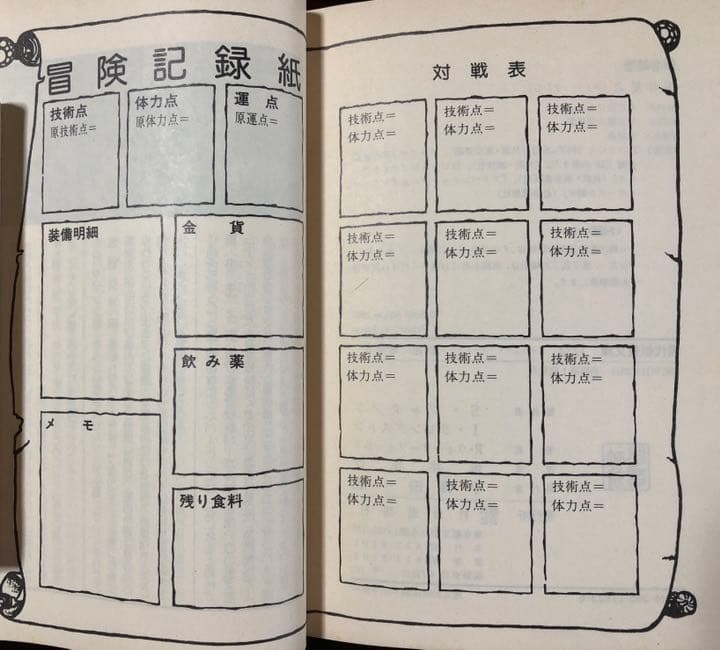 冒険記録紙
技術点
原技術点＝
体力点
原体力点＝
運点
原運点＝
装備明細
金貨
飲み薬
メモ
残り食料
対戦表
技術点＝
体力点＝
技術点＝
体力点＝
技術点＝
体力点＝
技術点＝
体力点＝
技術点＝
体力点＝
技術点＝
体力点＝
技術点＝
体力点＝
技術点＝
体力点＝
技術点＝
体力点＝
技術点＝
体力点＝
技術点＝
体力点＝
技術点＝
体力点＝